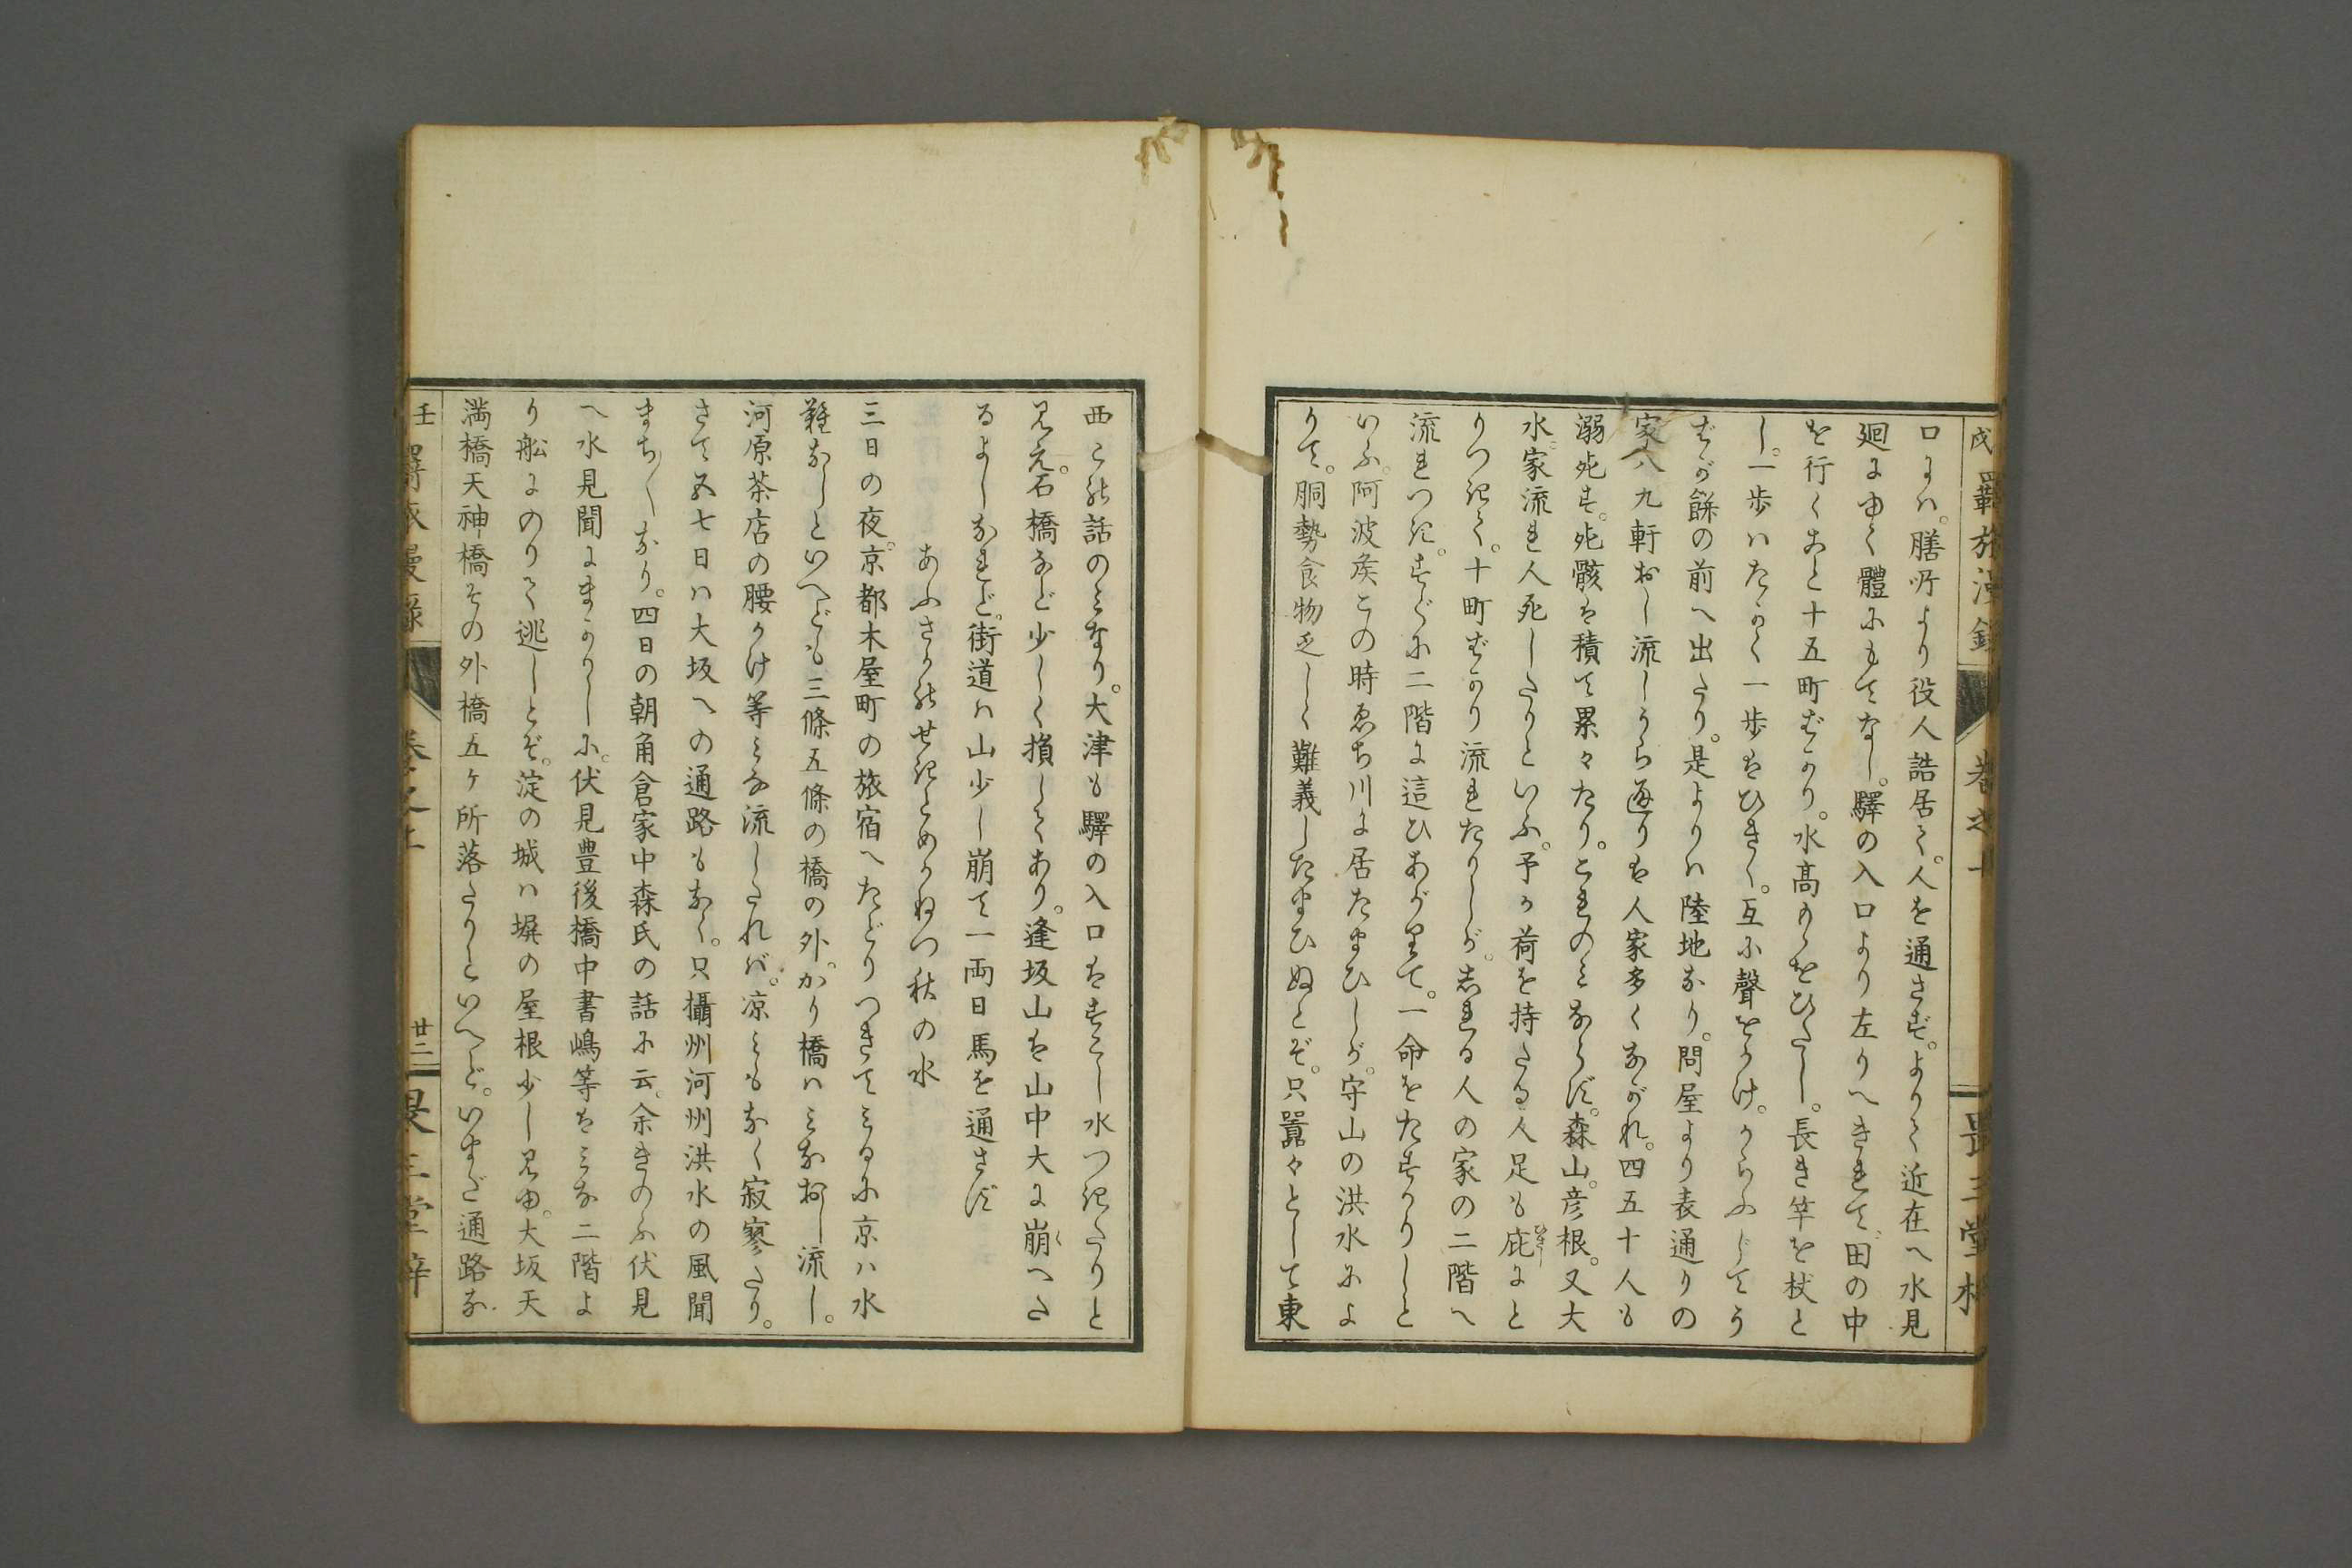 口まハ。膳所より役人詰居て。人を通さず。よりて近在へ水見
廻に由て體にもてなし。驛の入口より左りへきれて。田の中
を行くこと十五町ばかり。水髙のゝをひたし。長き竿を杖と
し。一歩ハたかく一歩はひきく。互に聲をかけ。からふじてう
ばが餅の前へ出たり。是よりハ陸地なり。問屋より表通りの
家八九軒おし流しから邊りは人家多くながれ。四五十人も
溺死す。死骸を積て累々たり。これのミならず。森山。彦根。又大
水ニ家流れ人死したりといふ。予が荷を持たる人足も庇ひさしにと
りつきて。十町ばかり流れたりしが。志れる人の家の二階へ
流れつき。すぐに二階に這ひあがりて。一命をたすかりしと
いふ。阿波矦この時ゑち川に居たまひしが。守山の洪水によ
りて。胴勢食物乏しく難義したまひぬとぞ。只囂々として東
西この話のミなり。大津も驛の入口はすこし水つきたりと
見え。石橋など少しく損してあり。逢坂山は山中大に崩くへた
るよしなれど。街道ハ山少し崩て一両日馬を通さず
あふさかのせきとめかねつ秋の水
三日の夜。京都木屋町の旅宿へたどりつきてミるに京ハ水
難なしといへども三條五條の橋の外。かり橋ハミなおし流し。
河原茶店の腰かけ等ミな流したれバ。凉ミもなく寂寥たり。
さて五七日ハ大坂への通路もなく。只攝州河州洪水の風聞
まち〱なり。四日の朝角倉家中森氏の話に云。余きのふ伏見
へ水見聞にまかりしに。伏見豊後橋中書嶋等はミな二階よ
り舩にのりて逃しとぞ。淀の城ハ塀の屋根少し見ゆ。大坂天
満橋天神橋その外橋五ヶ所落たりといへど。いまだ通路な